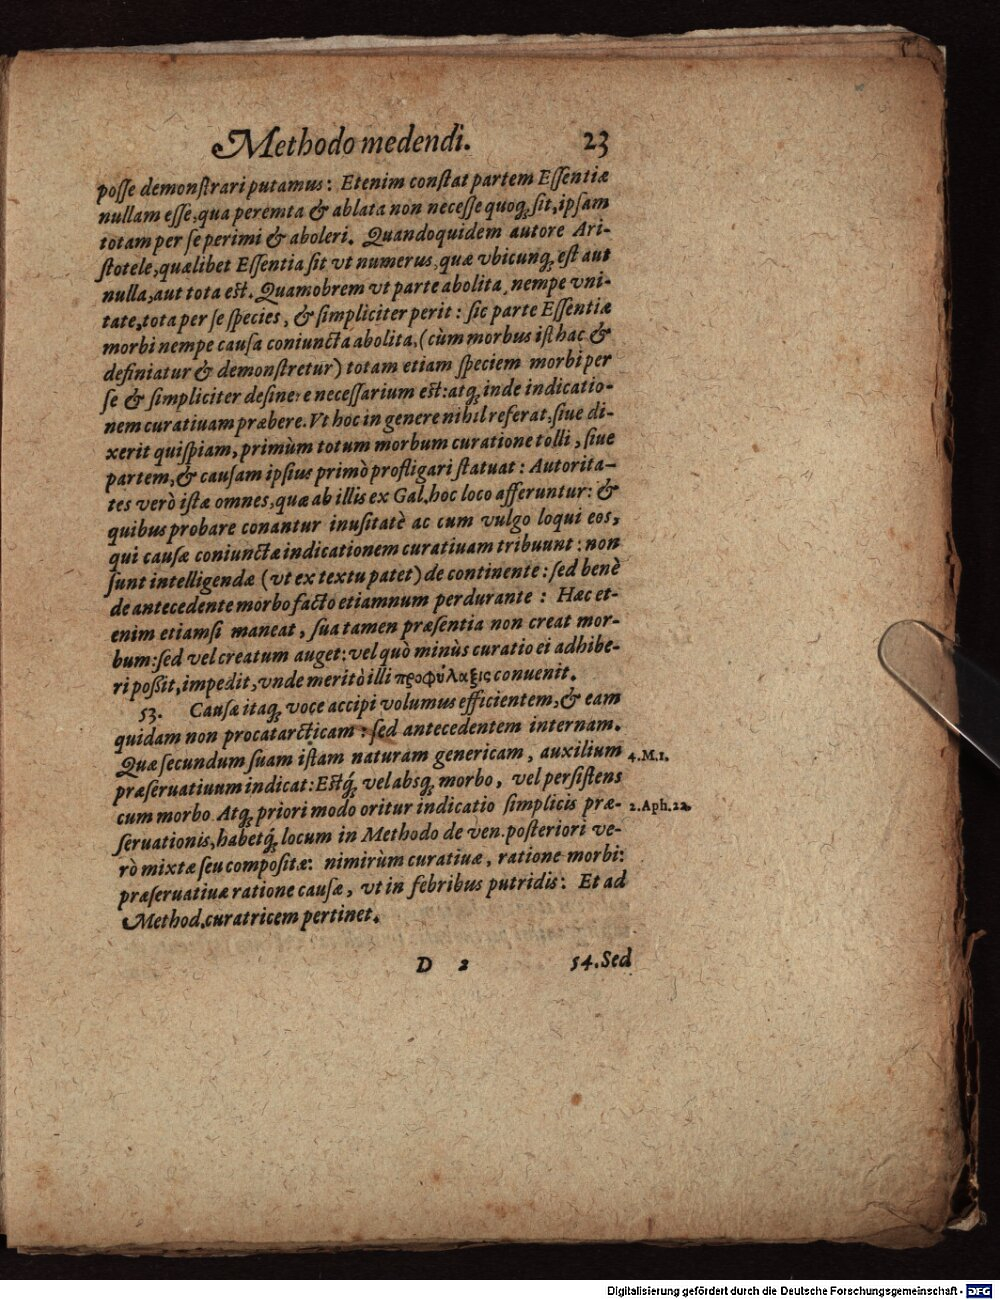 Methodo medendi. 23
posse demonstrari putamus: Etenim constat partem Essentiæ
nullam esse, qua peremta & ablata non necesse quoq; sit, ipsam
totam per se perimi & aboleri. Quandoquidem autore Ari-
stotele, quælibet Essentia sit vt numerus, quæ vbicunq; est aut
nulla, aut tota est. Quamobrem vt parte abolita, nempe vni-
tate, tota per se species, & simpliciter perit: sic parte Essentiæ
morbi nempe causa coniuncta abolita, (cùm morbus isthac &
definiatur & demonstretur) totam etiam speciem morbi per
se & simpliciter desinere necessarium est: atq; inde indicatio-
nem curatiuam præbere. Vt hoc in genere nihil referat, siue di-
xerit quispiam, primùm totum morbum curatione tolli, siue
partem, & causam ipsius primò profligari statuat: Autorita-
tes verò istæ omnes, quæ ab illis ex Gal. hoc loco afferuntur: &
quibus probare conantur inusitatè ac cum vulgo loqui eos,
qui causæ coniunctæ indicationem curatiuam tribuunt: non
sunt intelligendæ (vt ex textu patet) de continente: sed benè
de antecedente morbo facto etiamnum perdurante: Hæc et-
enim etiamsi maneat, sua tamen præsentia non creat mor-
bum: sed vel creatum auget: vel quò minùs curatio ei adhibe-
ri poßit, impedit, vnde meritò illi προφύλαξις conuenit.
53. Causæ itaq; voce accipi volumus efficientem, & eam
quidam non procatarcticam: sed antecedentem internam.
Quæ secundum suam istam naturam genericam, auxilium 4.M.1.
præseruatiuum indicat: Estq́; vel absq; morbo, vel persistens
cum morbo. Atq; priori modo oritur indicatio simplicis præ- 2.Aph.22.
seruationis, habetq́; locum in Methodo de ven. posteriori ve-
rò mixtæ seu compositæ: nimirùm curatiuæ, ratione morbi:
præseruatiuæ ratione causæ, vt in febribus putridis: Et ad
Method. curatricem pertinet.
D 2 54. Sed
Digitalisierung gefördert durch die Deutsche Forschungsgemeinschaft - DFG